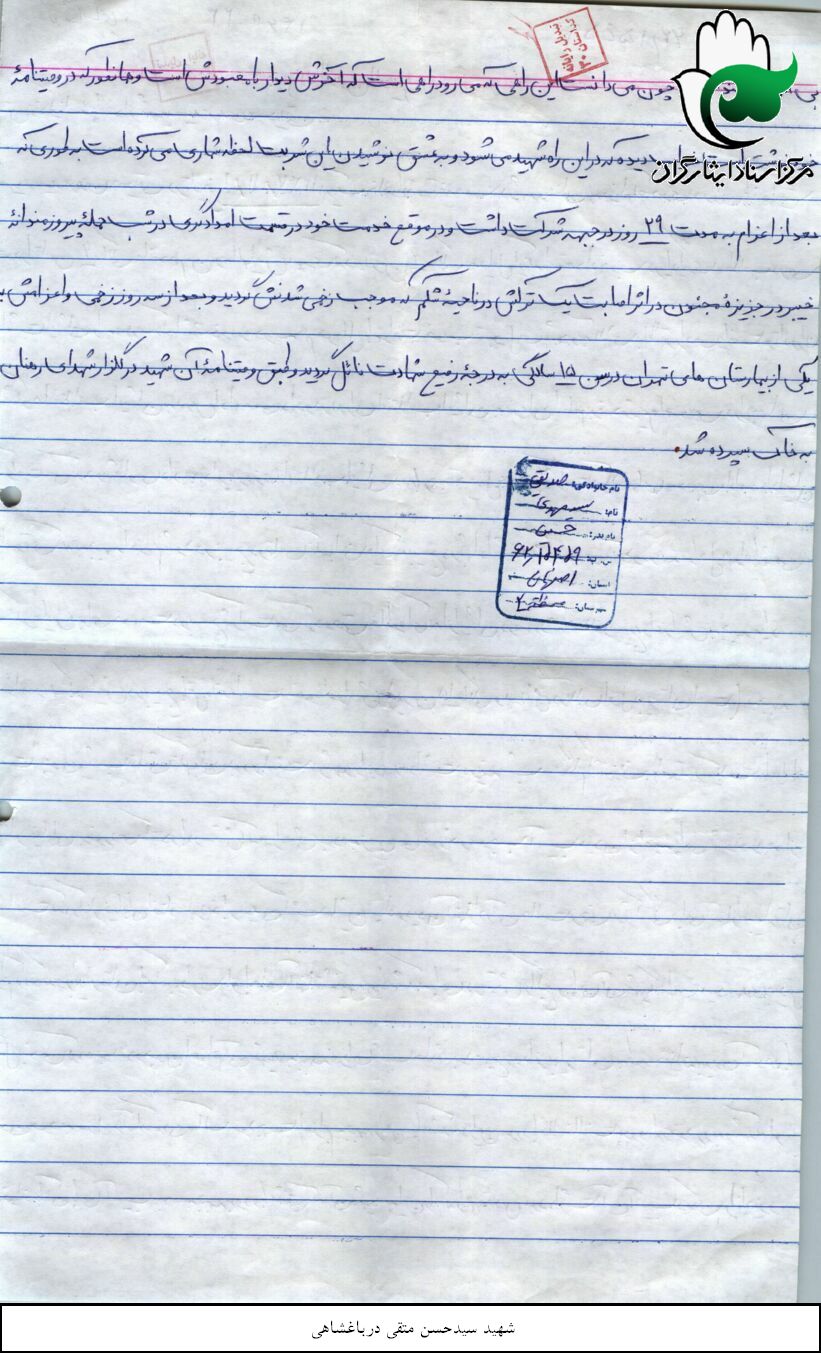 چون می دانست این راهی که می رود راهی است که آخرش دیدار با معبودش است و همانطور که در وصیتنامهٔ
دیده که در این راه شهید می شود و به عشق نوشیدن این شربت لحظه شماری می کرده است به طوری که
بعد از اعزام به مدت ۲۹ روز در جبهه شرکت داشت و در موقع خدمت خود در قسمت امدادگری در شب حملهٔ پیروزمندانهٔ
خیبر در جزیزهٔ مجنون در اثر اصابت یک ترکش در ناحیهٔ شکم که موجب زخمی شدنش گردید و بعد از سه روز زخمی و اعزامش به
یکی از بیمارستان های تهران در سن ۱۵ سالگی به درجهٔ رفیع شهادت نائل گردید و طبق وصیتنامهٔ آن شهید در گلزار شهدای رهنان
به خاک سپرده شد.
مرکز اسناد ایثارگران
نام خانوادگی:
نام:
نام پدر: حسن
استان: اصفهان
شهرستان:
شهید سیدحسن متقی درباغشاهی